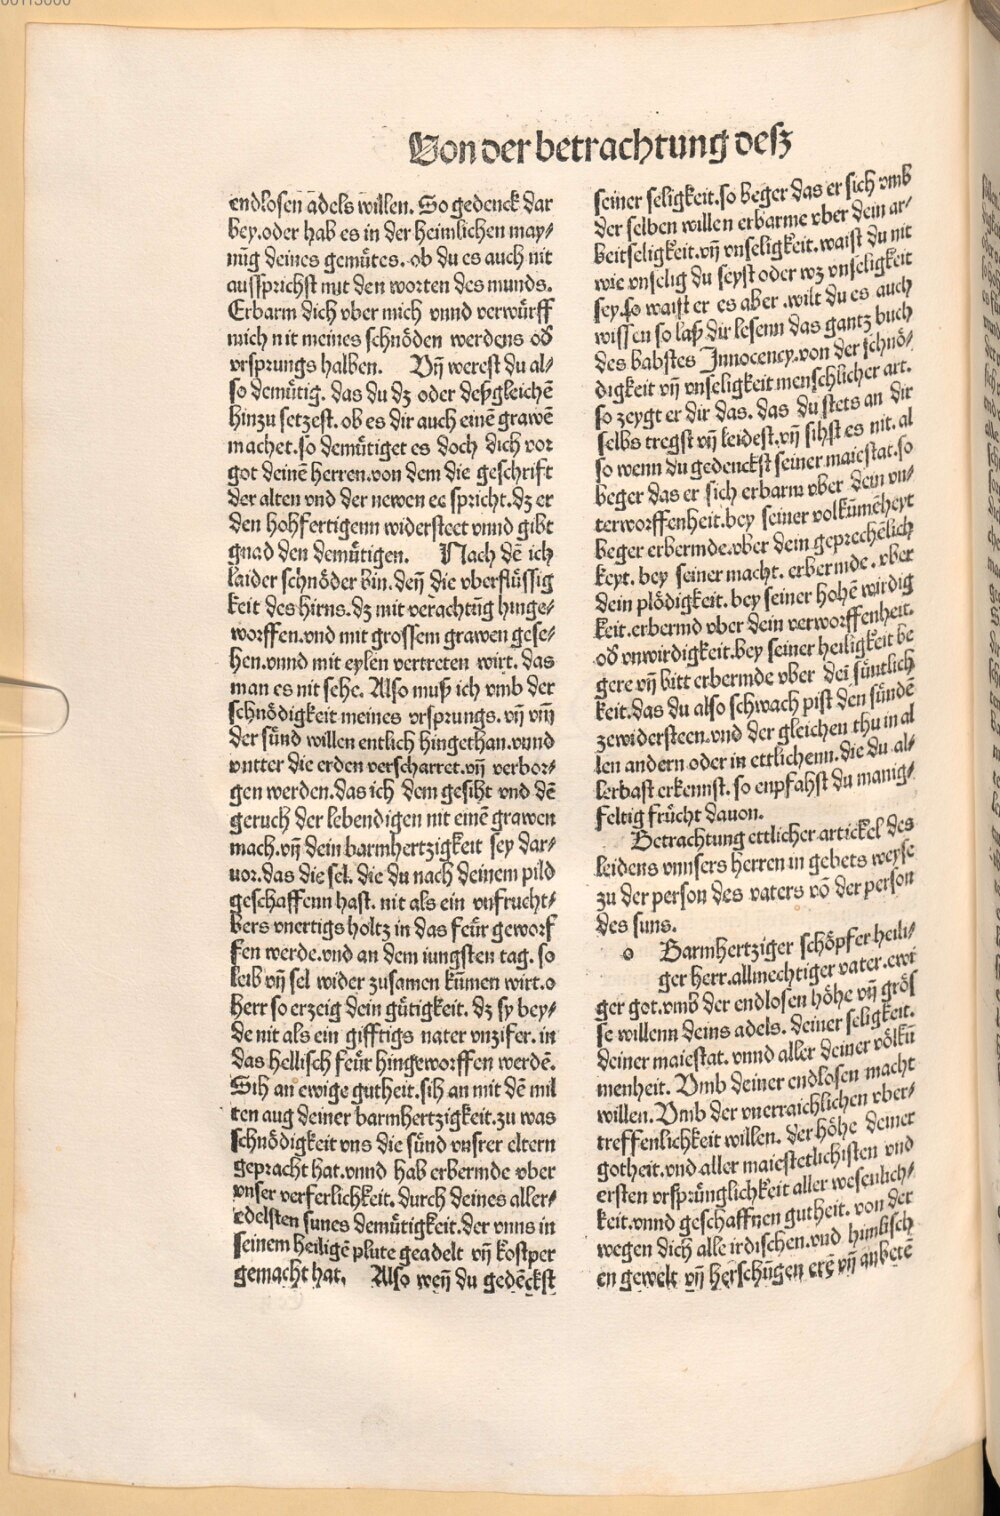 Von der betrachtung deß
endlosen adels willen. So gedenck dar
bey.oder hab es in der heimlichen may⸗
nūg deines gemuͤtes. ob du es auch nit
aussprichst mit den worten des munds.
Erbarm dich vber mich vnnd verwuͤrff
mich nit meines schnoͤden werdens od̕
vrsprungs halben. Vn̄ werest du al⸗
so demuͤtig. das du dz oder deßgleichē
hinzu setzest. ob es dir auch einē grawē
machet.so demuͤtiget es doch dich vor
got deinē herren.von dem die geschrift
der alten vnd der newen ee spricht.dz er
den hohfertigenn widersteet vnnd gibt
gnad den demuͤtigen. Nach dē ich
laider schnoͤder bin. den̄ die vberfluͤssig
keit des hirns.dz mit verachtūg hinge⸗
worffen.vnd mit grossem grawen gese⸗
hen.vnnd mit eylen vertreten wirt. das
man es nit sehe. Also muß ich vmb der
schnoͤdigkeit meines vrsprungs. vn̄ vm̄
der suͤnd willen entlich hingethan.vnnd
vntter die erden verscharret.vn̄ verbor⸗
gen werden.das ich dem gesiht vnd dē
geruch der lebendigen nit einē grawen
mach.vn̄ dein barmhertzigkeit sey dar⸗
vor.das die sel. die du nach deinem pild
geschaffenn hast. nit als ein vnfrucht⸗
bers vnertigs holtz in das feuͤr geworf
fen werde.vnd an dem iungsten tag. so
leib vn̄ sel wider zusamen kūmen wirt.o
herr so erzeig dein guͤtigkeit. dz sy bey⸗
de nit als ein gifftigs nater vnzifer. in
das hellisch feuͤr hingeworffen werdē.
Sih an ewige gutheit.sih an mit dē mil
ten aug deiner barmhertzigkeit.zu was
schnoͤdigkeit vns die suͤnd vnsrer eltern
gepracht hat.vnnd hab erbermde vber
vnser verferlichkeit. durch deines aller⸗
edelsten sunes demuͤtigkeit.der vnns in
seinem heiligē plute geadelt vn̄ kostper
gemacht hat. Also wen̄ du gedēckst
seiner seligkeit.so beger das er sich vmb
der selben willen erbarme vber dein ar⸗
beitseligkeit.vn̄ vnseligkeit.waist du nit
wie vnselig du seyst oder wz vnseligkeit
sey.so waist er es aber .wilt du es auch
wissen so laß dir lesenn das gantz buch
des babstes Innocency.von der schnoͤ⸗
digkeit vn̄ vnseligkeit menschlicher art.
so zeygt er dir das. das du stets an dir
selbs tregst vn̄ leidest.vn̄ sihst es nit. al
so wenn du gedenckst seiner maiestat.so
beger das er sich erbarm vber dein vn⸗
terworffenheit.bey seiner volkūmēheyt
beger erbermde.vber dein geprechēlich
keyt. bey seiner macht. erbermde. vber
dein ploͤdigkeit. bey seiner hohē wirdig
keit.erbermd vber dein verworffenheit.
od̕ vnwirdigkeit.bey seiner heiligkeit be
gere vn̄ bitt erbermde vber dei suͤntlich
keit.das du also schwach pist den suͤndē
zewidersteen.vnd der gleichen thu in al
len andern oder in ettlichenn.die du al⸗
lerbast erkennst. so enpfahst du manig⸗
feltig fruͤcht dauon.
Betrachtung ettlicher artickel des
leidens vnnsers herren in gebets weyse
zu der person des vaters vō der person
des suns.
o Barmhertziger schoͤpfer heili⸗
ger herr.allmechtiger vater.ewi
ger got.vmb der endlosen hoͤhe vn̄ groͤs
se willenn deins adels. deiner seligkeit.
deiner maiestat. vnnd aller deiner voͤlkū
menheit. Vmb deiner endlosen macht
willen. Vmb der vnerraichlichen vber⸗
treffenlichkeit willen. der hoͤhe deiner
gotheit.vnd aller maiestetlichisten vnd
ersten vrspruͤnglichkeit aller wesenlich⸗
keit.vnnd geschaffnen gutheit. von der
wegen dich alle irdischen.vnd himlisch
en gewelt vn̄ herschūgen erē vn̄ anbetē